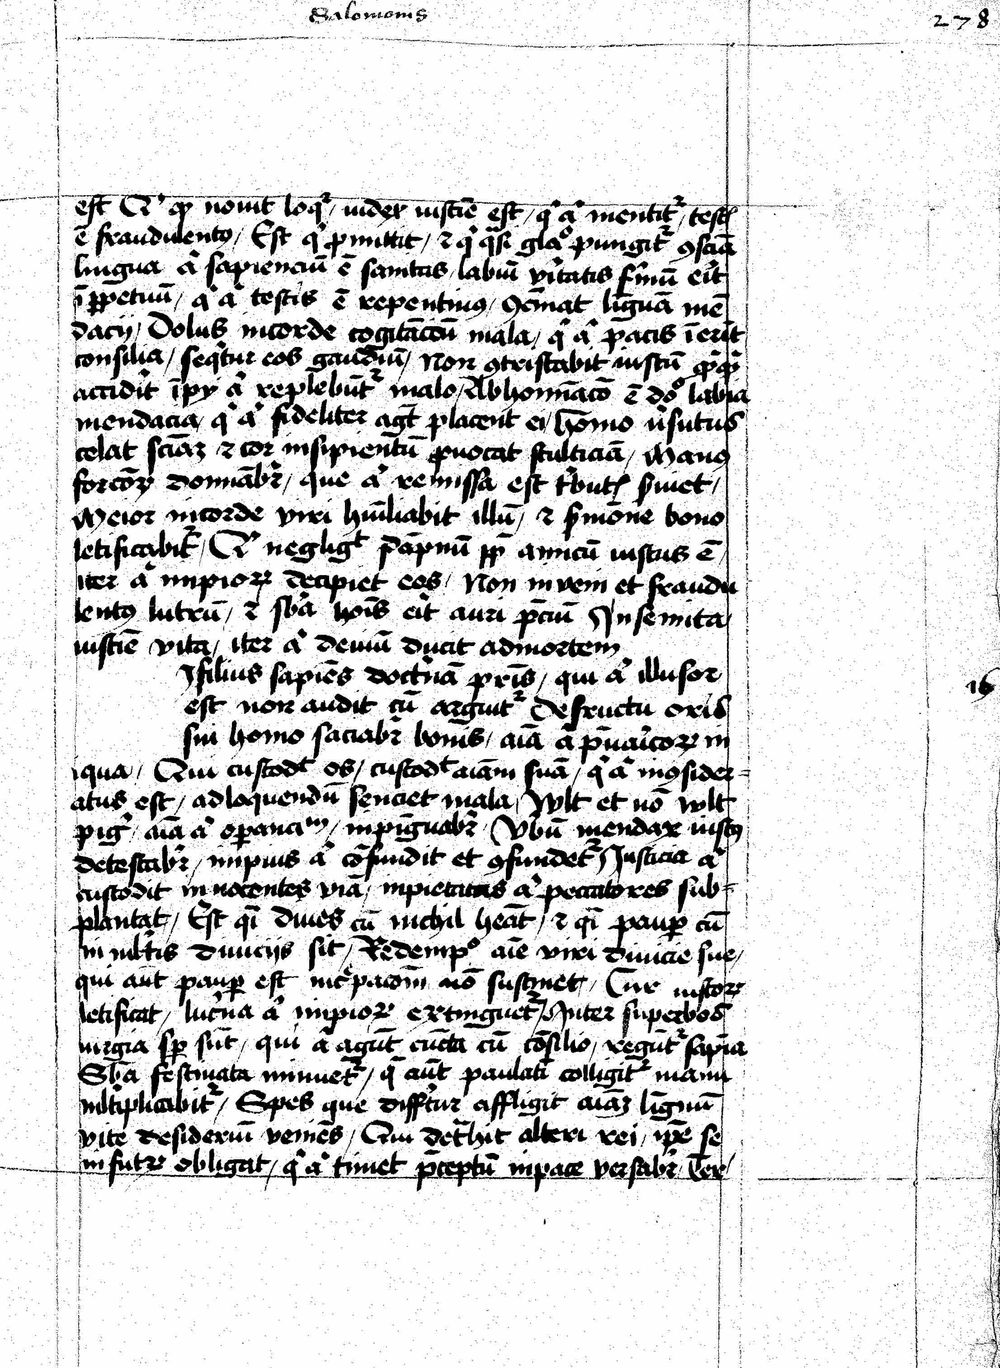 Salomonis
278
est Qͥ qͩ nouit loqͬ / iudex iusticie est / qͥ aͭ mentitͬ / testꝭ
ē fraudulentꝯ / Est qͥ ꝓmittit / ⁊ qͥ qͣsi glaͦ pungitͬ ꝯsciā
lingua aͭ sapienciū ē sanitas / labiū vͥtatis fͥmū eͥt
ī ꝑpetuū / qͥ aͭ testis ē repentinꝯ / ꝯcīnat linguā mē
dacij / Dolus incorde cogitāciū mala / qͥ aͭ pacis īeūt
consilia / seqͥtur eos gaudiū / Non ꝯtristabit iustū qͥcqͥd
acciderit īpij aͭ replebūtͬ malo / Abhoīacō ē dōͦ labia
mendacia / qͥ aͭ fideliter agūt placent ei / homo vͥsutus
celat sciāꝫ ⁊ cor insipientū ꝓuocat stulticiā / Manꝯ
forcōꝝ domīabͬ / que aͭ remissa est tͥbutꝭ sͥuiet /
Meror incorde viri huīliabit illū / ⁊ sͥmōne bono
letificabitͬ / Qͥ negligͭ dāpnū ꝓpͭ amicū iustus ē /
iter aͭ impioꝝ decipiet eos / Non inveniet fraudu
lentꝯ lucrū / ⁊ sͧba hoīs eͥt auri pͨciū In semita
iusticie vita / iter aͭ deuiū ducit admortem
Ifilius sapiēs doctͥna pͣris / qui aͭ illusor
est non audit cū arguitͬ De fructu oris
sui homo saciabͬ bonis / aīa aͭ pͣuaͥcatoꝝ in
iqua / Qui custodͭ os / custodͭ aīam suā / qͥ aͭ incōsider=
atus est / ad loquendū senciet mala / Wlt et nō wlt
pigͥ / aīā aͭ oꝑanciū / inpinguabͬ / Vͥbū mendax iustꝯ
detestabͬ / impius aͭ cōfundit et ꝯfundetͬ Iusticia aͭ
custodit innocentes viā / inpietatas aͭ peccatores sub=
plantat / Est qͣi diues cū nichil heāt / ⁊ qͣi pauꝑ cū
in ml̄tis diuicijs sit / Redempͦ aīe viri diuicie sue /
qui aut̄ pauꝑ est incͬpacōm nō sustinet / Lux iustoꝝ
letificat / lucͥna aͭ impioꝝ extinguetͬ Inter superbos
iurgia sꝑ sūt / qui aͭ agūt cūcta cū cōsilio / regūtͬ sapīa
Sͧba festinata minuetͬ / qͥ aūt paulatī colligitͬ manu
ml̄tiplicabitͬ / Spes que differtur affligit aīaꝫ lignū
vite desideriū veniēs / Qui detͣhit alteri rei / ipē se
in futꝝ obligat / qͥ aͭ timet pͨceptū inpace versabͬ / Lex
16